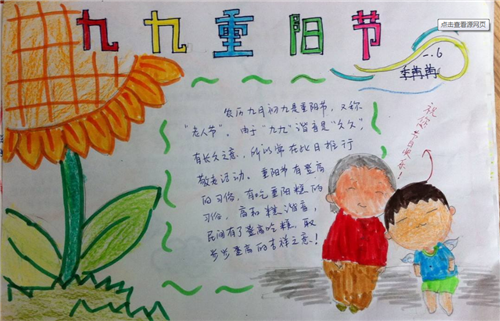 九九重阳节
点击查看源网页
农历九月初九是重阳节，又称
“老人节”。由于“九九”谐音是“久久”，
有长久之意，所以常在此日推行
敬老活动。重阳节有登高
的习俗，有吃重阳糕的
习俗，高和糕谐音，
民间有了登高吃糕，取
步步登高的吉祥之意！
祝您